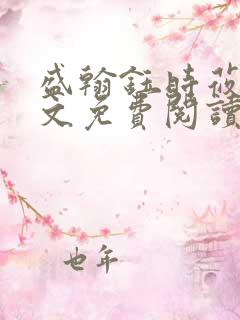 盛翰鈺時莜
文免費閱讀
也年